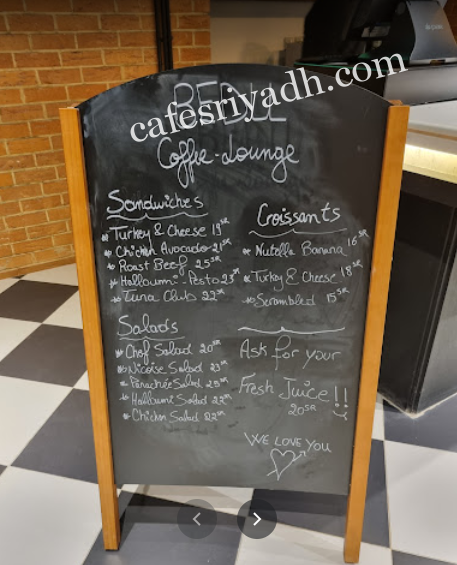 cafesriyadh.com
Coffee-Lounge
Sandwiches
* Turkey & Cheese 19 SR
* Chicken Avocado 21 SR
* Roast Beef 25 SR
* Halloumi Pesto 23 SR
* Tuna Club 22 SR
Salads
* Chef Salad 20 SR
* Nicoise Salad 23 SR
* Parachée Salad 25 SR
* Halloumi Salad 22 SR
* Chicken Salad 22 SR
Croissants
* Nutella Banana 16 SR
* Turkey & Cheese 18 SR
* Scrambled 15 SR
Ask for your
Fresh Juice!!
20 SR
WE LOVE YOU